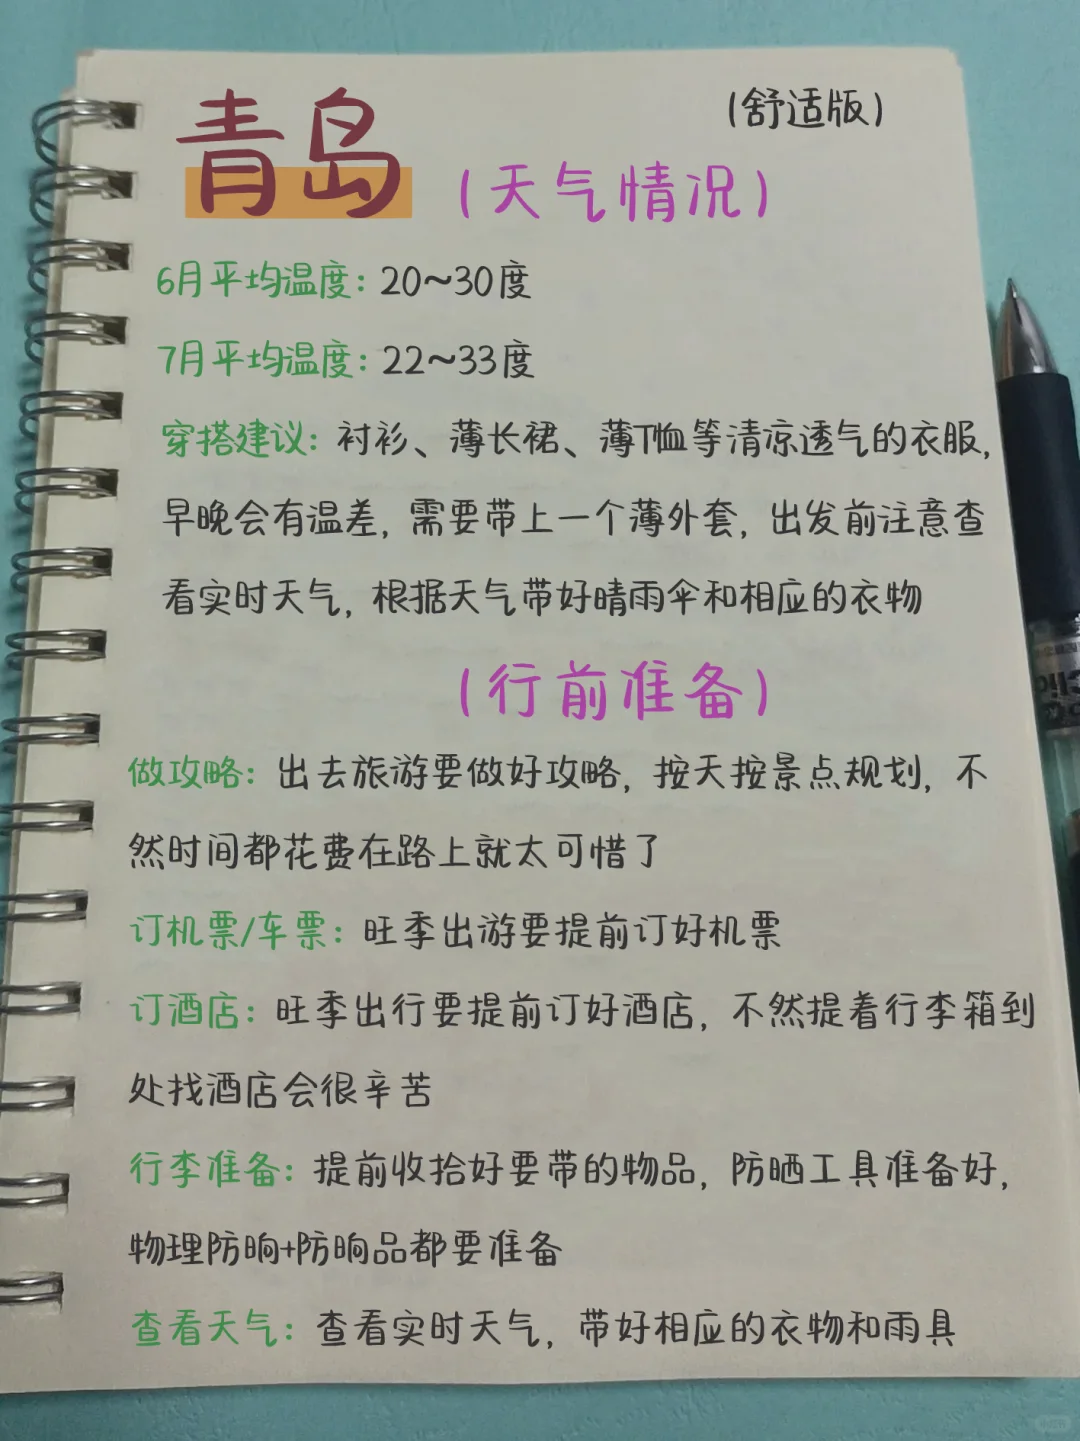 青岛
(舒适版)
(天气情况)
6月平均温度：20~30度
7月平均温度：22~33度
穿搭建议：衬衫、薄长裙、薄T恤等清凉透气的衣服，
早晚会有温差，需要带上一个薄外套，出发前注意查
看实时天气，根据天气带好晴雨伞和相应的衣物
(行前准备)
做攻略：出去旅游要做好攻略，按天按景点规划，不
然时间都花费在路上就太可惜了
订机票/车票：旺季出游要提前订好机票
订酒店：旺季出行要提前订好酒店，不然提着行李箱到
处找酒店会很辛苦
行李准备：提前收拾好要带的物品，防晒工具准备好，
物理防晌+防晌品都要准备
查看天气：查看实时天气，带好相应的衣物和雨具